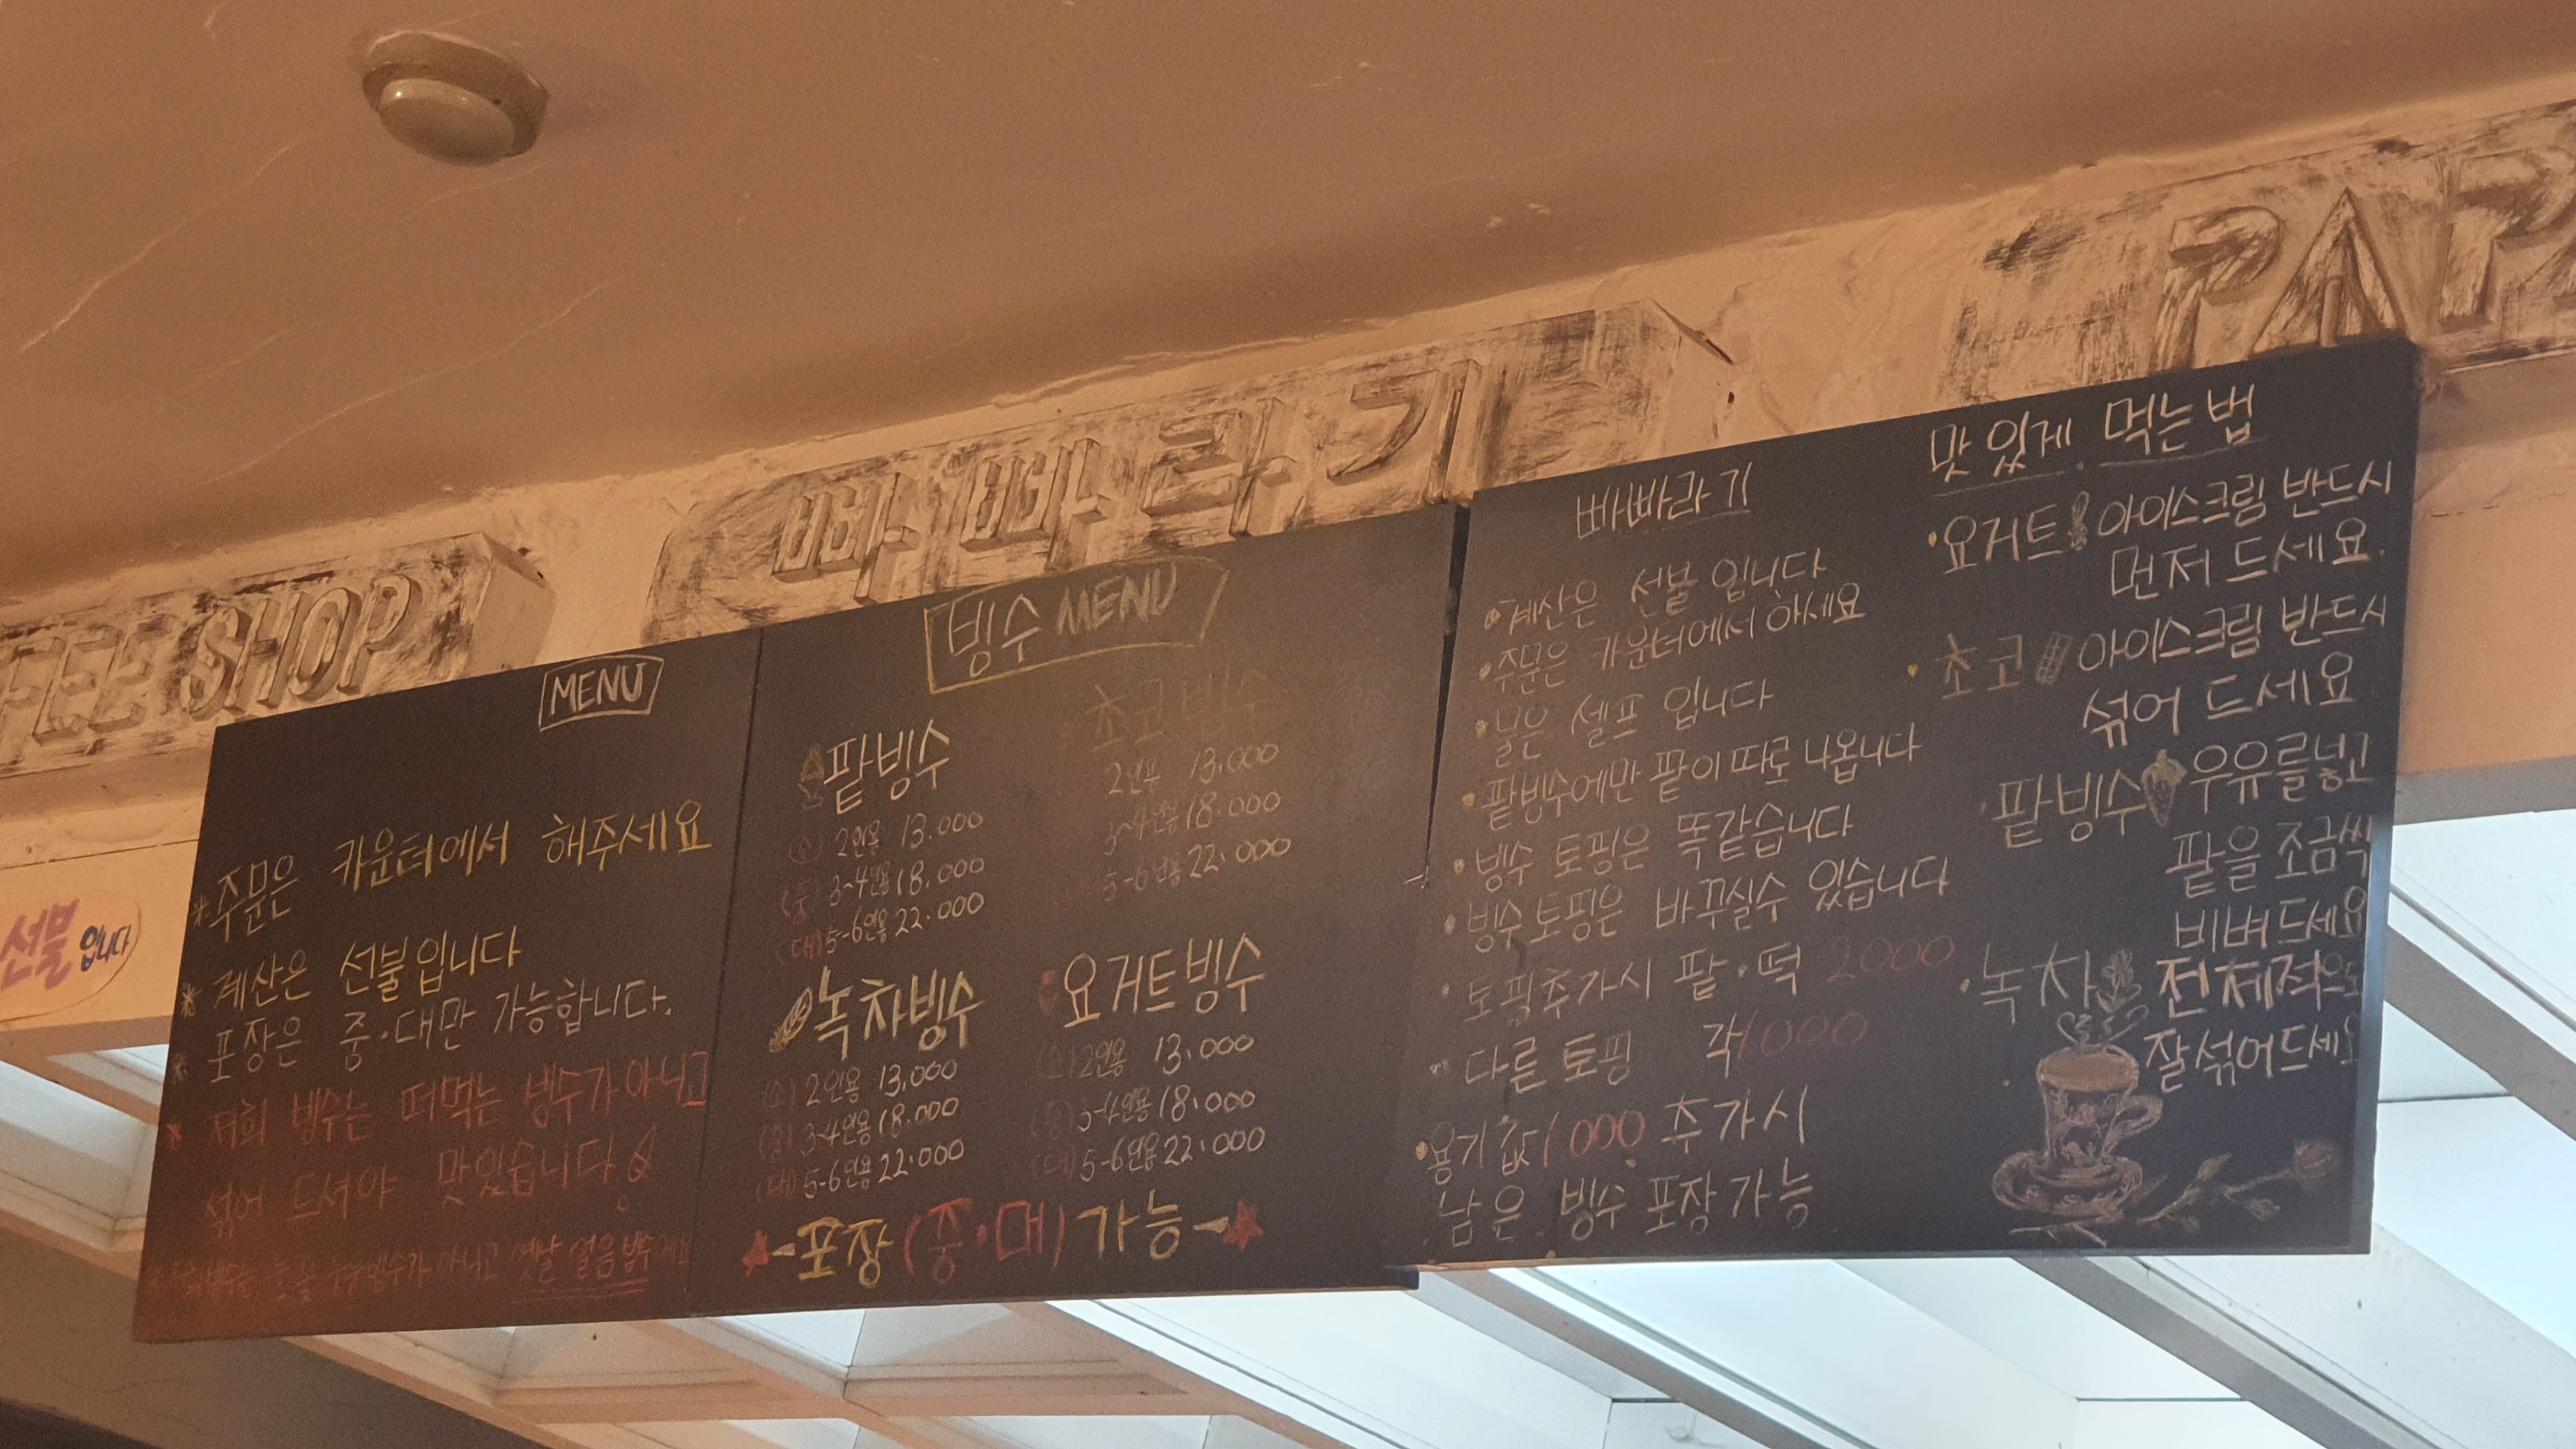 FEE SHOP
빠빠라기
PAP
선불 입니다
MENU
주문은 카운터에서 해주세요
계산은 선불입니다
포장은 중·대만 가능합니다.
저희 빙수는 떠먹는 빙수가 아니고
섞어 드셔야 맛있습니다
눈꽃 빙수가 아니고 옛날 얼음 빙수예요
빙수 MENU
팥빙수
(소) 2인용 13.000
(중) 3~4인용 18.000
(대) 5-6인용 22.000
초코빙수
2인용 13.000
3~4인용 18.000
5-6인용 22.000
녹차빙수
(소) 2인용 13.000
(중) 3~4인용 18.000
(대) 5-6인용 22.000
요거트빙수
(소) 2인용 13.000
(중) 3-4인용 18.000
(대) 5-6인용 22.000
★-포장(중·대)가능-★
빠빠라기
·계산은 선불 입니다
·주문은 카운터에서 하세요
·물은 셀프 입니다
·팥빙수에만 팥이 따로 나옵니다
·빙수 토핑은 똑같습니다
·빙수토핑은 바꾸실수 있습니다
·토핑추가시 팥·떡 2000
·다른 토핑 각1000
·용기값1000 추가시
남은 빙수 포장가능
맛있게 먹는법
·요거트 아이스크림 반드시
먼저 드세요.
·초코 아이스크림 반드시
섞어 드세요
·팥빙수 우유를넣고
팥을 조금씩
비벼드세요
·녹차 전체적으로
잘섞어드세요